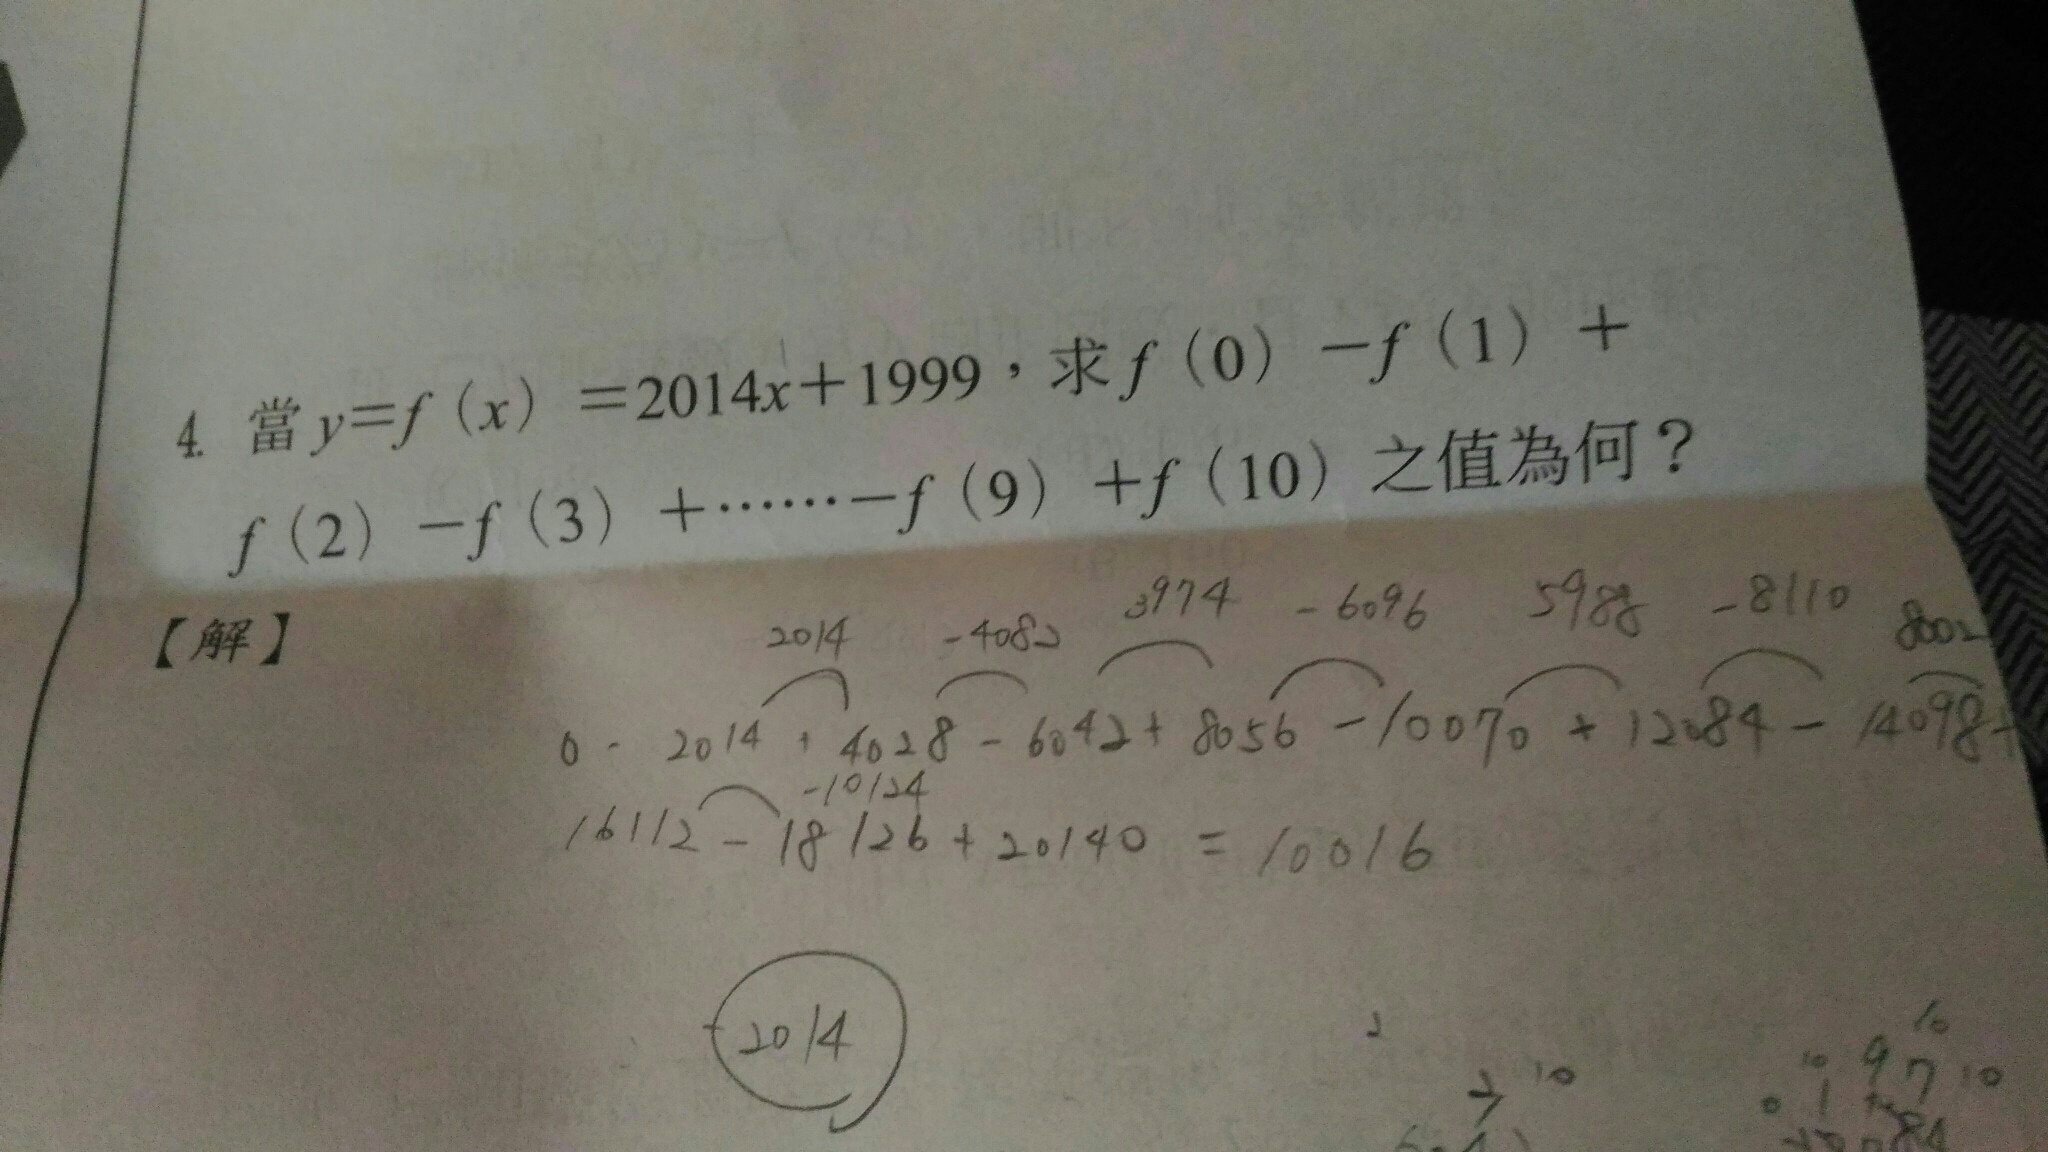 4. 當y=f（x）=2014x+1999，求f（0）-f（1）+
f（2）-f（3）+⋯⋯-f（9）+f（10）之值為何？
【解】
2014 -4082 3974 -6096 5988 -8110 8002
0 - 2014 + 4028 - 6042 + 8056 - 10070 + 12084 - 14098 +
-10124
16112 - 18126 + 20140 = 10016
2014
2
10
10 9 7 10
0 1